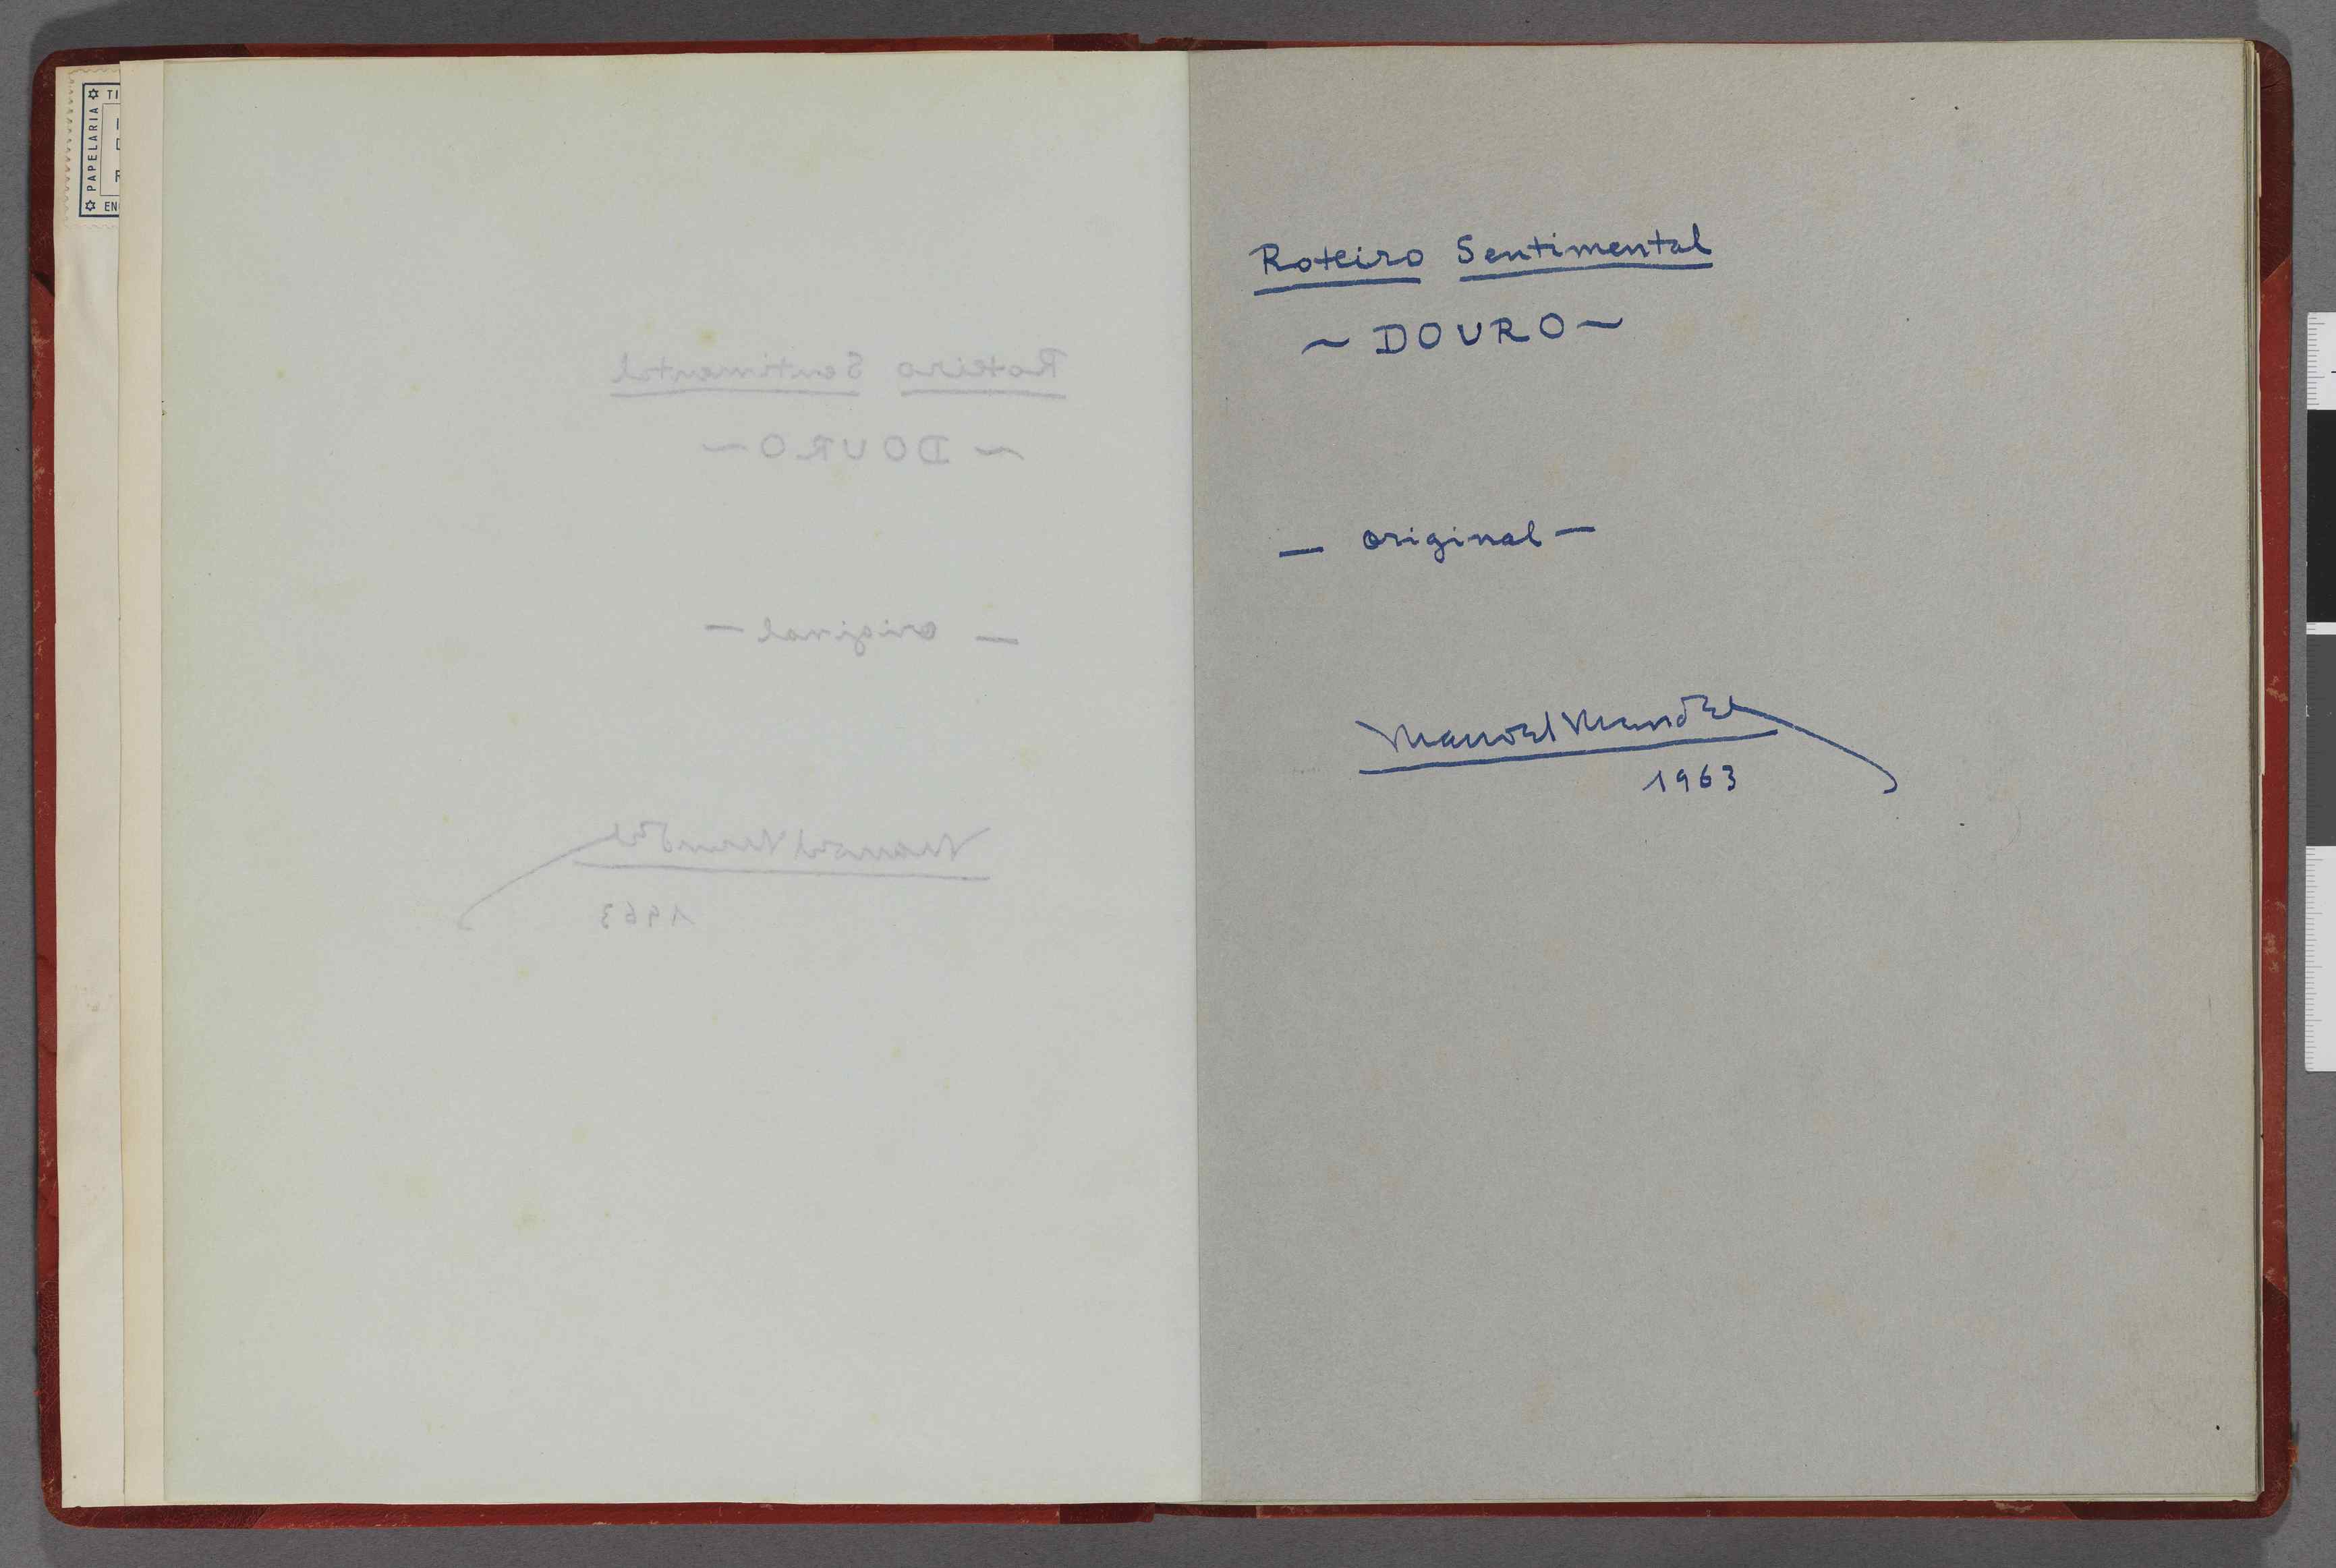 PAPELARIA
Roteiro Sentimental
~ DOURO ~
— original —
Manoel Mendes
1963